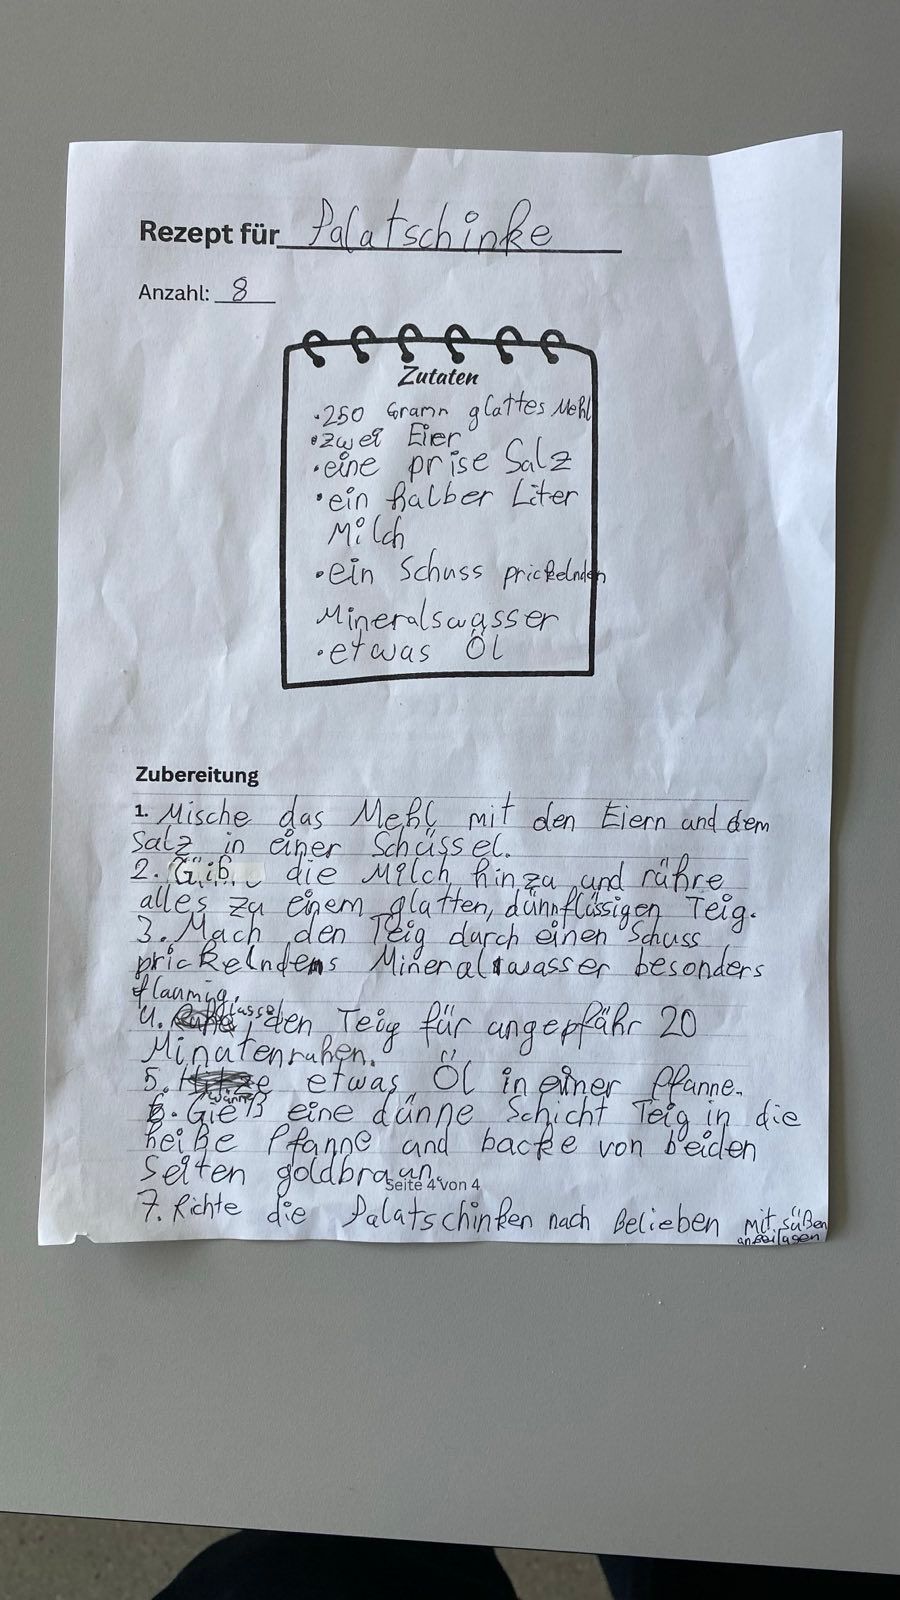 Rezept für Palatschinke
Anzahl: 8
Zutaten
·250 Gramn glattes Mehl
·zwei Eier
·eine prise Salz
·ein halber Liter
Milch
·ein Schuss prickelnden
Mineralswasser
·etwas Öl
Zubereitung
1. Mische das Mehl mit den Eiern und dem
Salz in einer Schüssel.
2. Gib die Milch hinzu und rühre
alles zu einem glatten, dünnflüssigen Teig.
3. Mach den Teig durch einen Schuss
prickelndens Mineralwasser besonders
flaumig.
4. lasse den Teig für angepfähr 20
Minuten ruhen.
5. wärme etwas Öl in einer Pfanne.
6. Gieß eine dünne Schicht Teig in die
heiße Pfanne und backe von beiden
Seiten goldbraun.
Seite 4 von 4
7. Richte die Palatschinken nach Belieben mit süßen